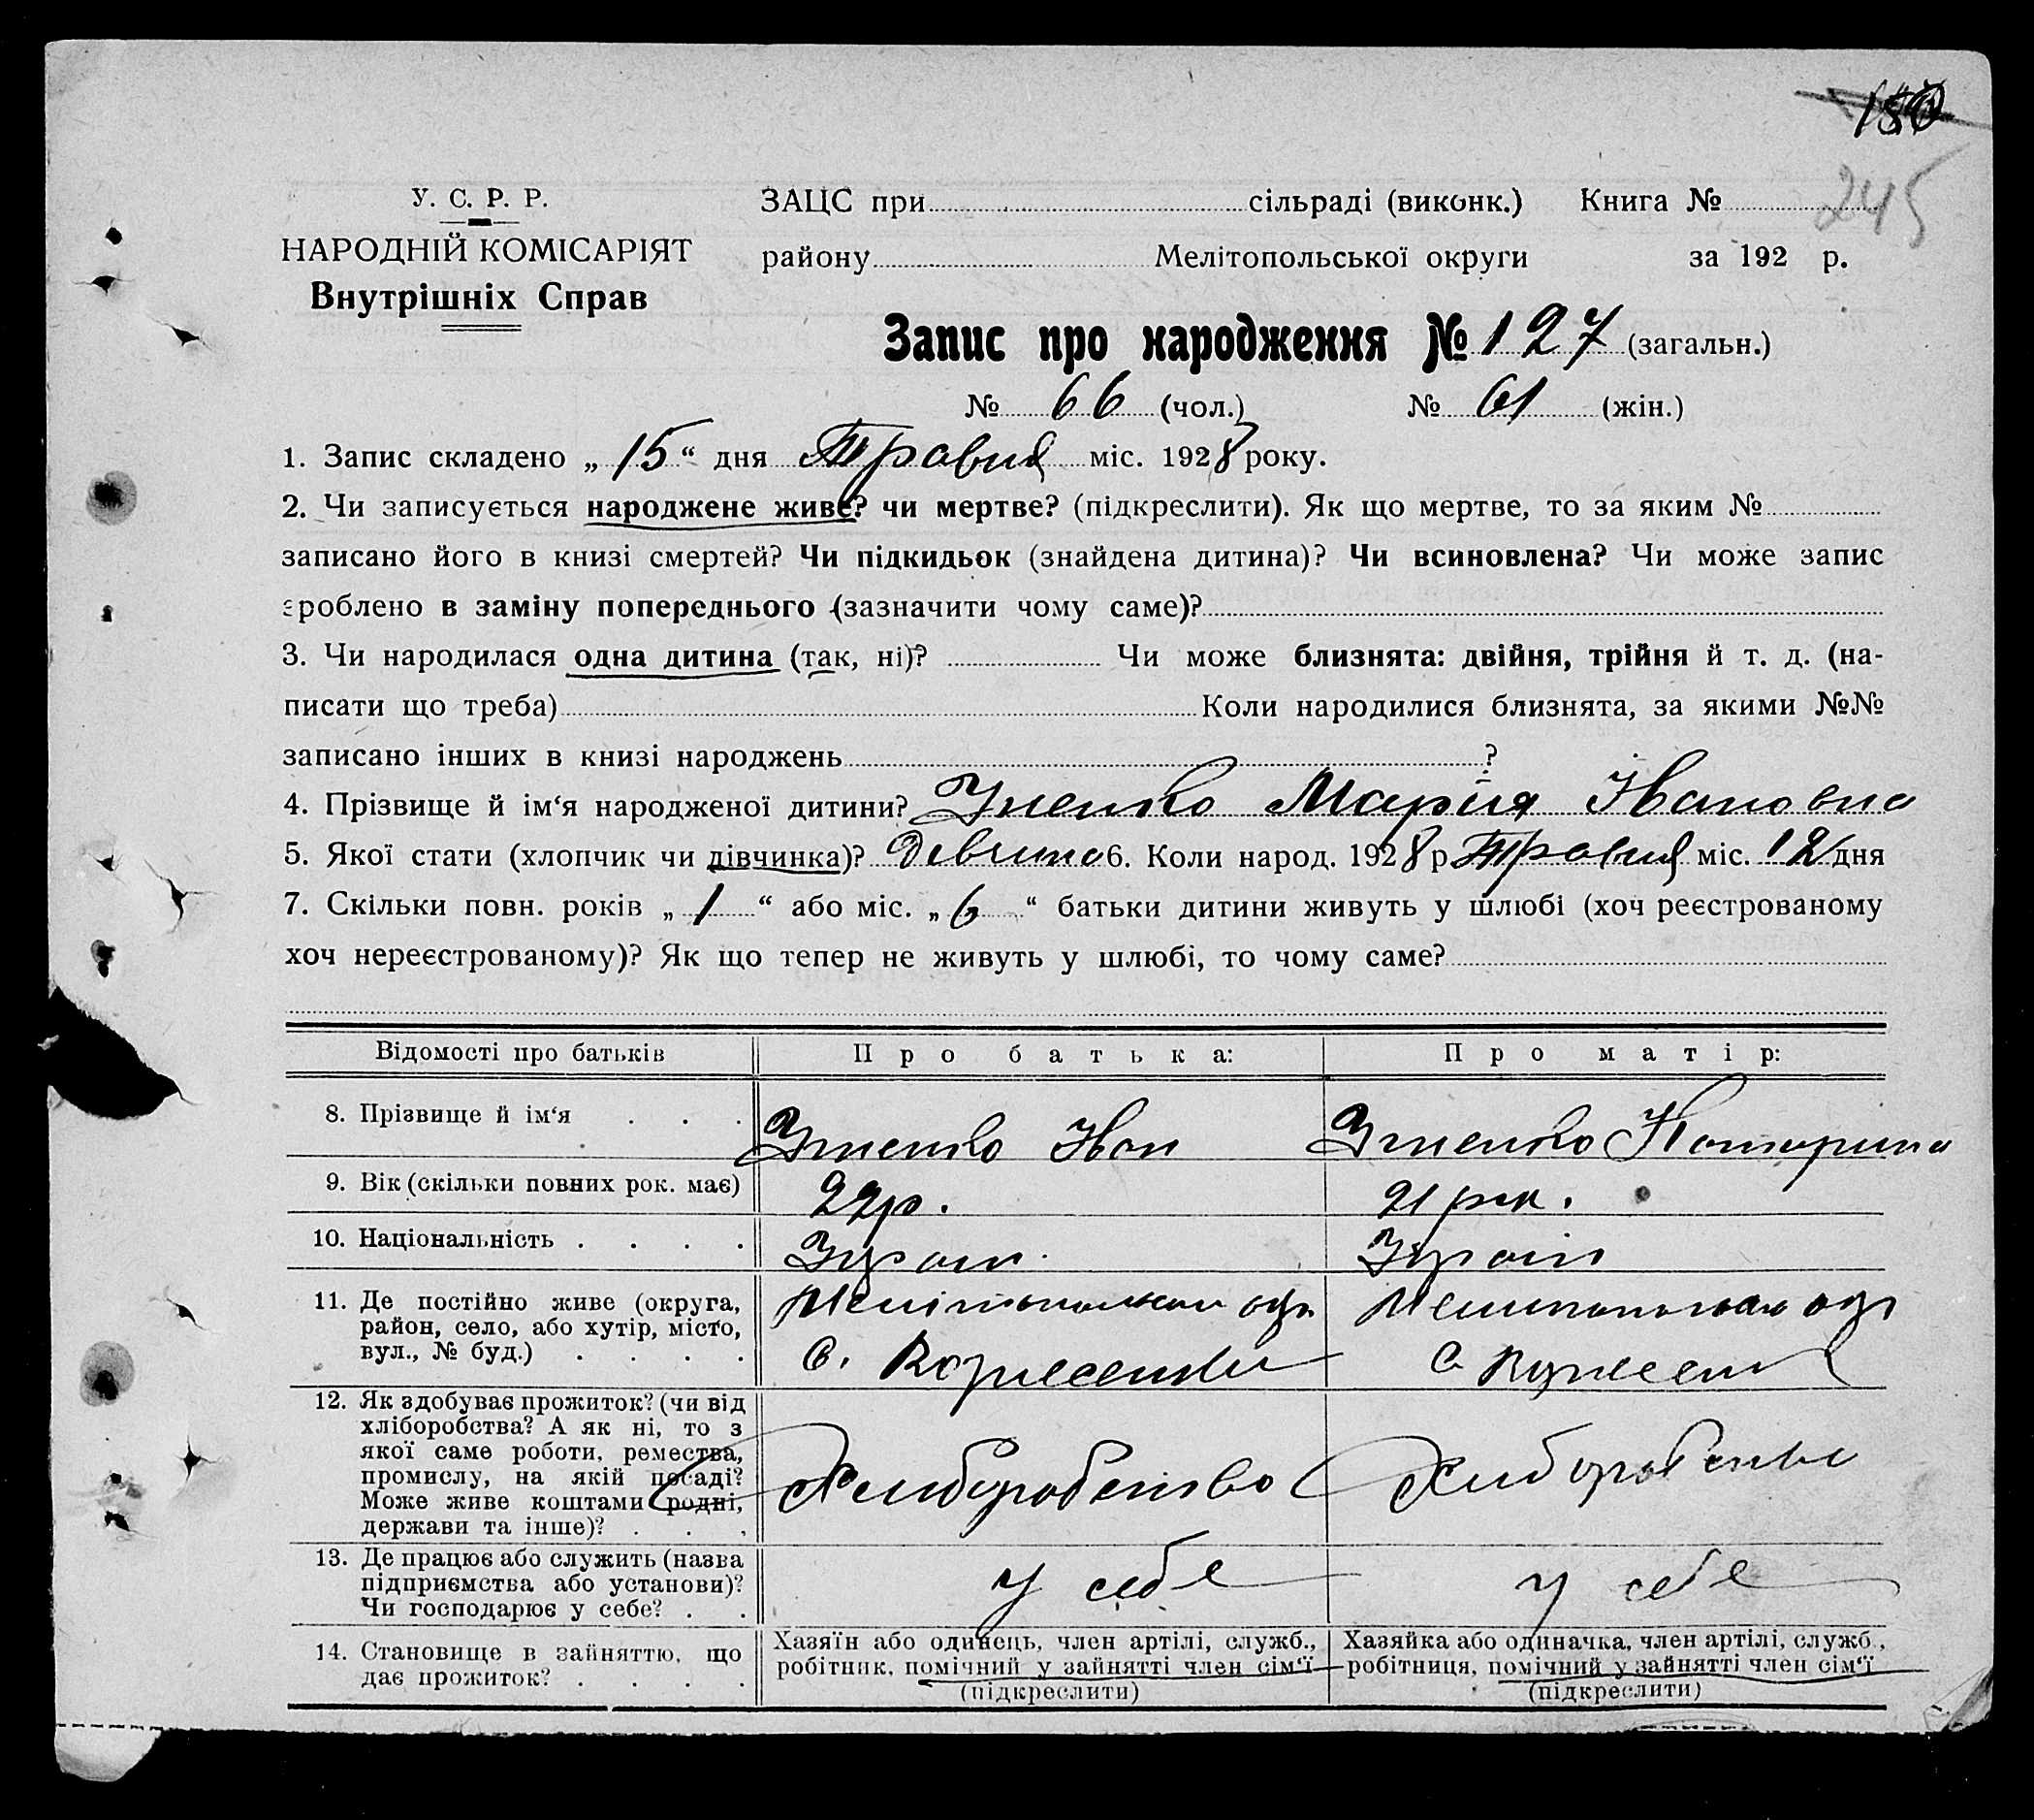 180
245
У. С. Р. Р.
НАРОДНІЙ КОМІСАРІЯТ
Внутрішніх Справ
ЗАЦС при сільраді (виконк.) Книга №
району Мелітопольської округи за 192 р.
Запис про народження № 127 (загальн.)
№ 66 (чол.) № 61 (жін.)
1. Запис складено „ 15 “ дня Травня міс. 1928 року.
2. Чи записується народжене живе? чи мертве? (підкреслити). Як що мертве, то за яким №
записано його в книзі смертей? Чи підкидьок (знайдена дитина)? Чи всиновлена? Чи може запис
зроблено в заміну попереднього (зазначити чому саме)?
3. Чи народилася одна дитина (так, ні)? Чи може близнята: двійня, трійня й т. д. (на-
писати що треба) Коли народилися близнята, за якими №№
записано інших в книзі народжень ?
4. Прізвище й ім‘я народженої дитини? Марія Івановна
5. Якої стати (хлопчик чи дівчинка)? Девчина 6. Коли народ. 1928 р. Травня міс. 12 дня
7. Скільки повн. років „ 1 “ або міс. „ 6 “ батьки дитини живуть у шлюбі (хоч реєстрованому
хоч нереєстрованому)? Як що тепер не живуть у шлюбі, то чому саме?
Відомості про батьків Про батька: Про матір:
8. Прізвище й ім‘я . . . Іван Катерина
9. Вік (скільки повних рок. має) 22р. 21 рок.
10. Національність . . . . Україн. Україн
11. Де постійно живе (округа,
район, село, або хутір, місто,
вул., № буд.) . . . .
Мелітопольськи окр.
с. Вознесенки
Мелитопольska окр
с. Вознесенк
12. Як здобуває прожиток? (чи від
хліборобства? А як ні, то з
якої саме роботи, ремества,
промислу, на якій посаді?
Може живе коштами родні,
держави та інше)? . . .
Хлиборобство
Хлиборобство
13. Де працює або служить (назва
підприємства або установи)?
Чи господарює у себе? . .
у себе
у себе
14. Становище в зайняттю, що
дає прожиток? . . . .
Хазяїн або одинець, член артілі, служб.,
робітник, помічний у зайнятті член сім‘ї
(підкреслити)
Хазяйка або одиначка, член артілі, служб.,
робітниця, помічний у зайнятті член сім‘ї
(підкреслити)